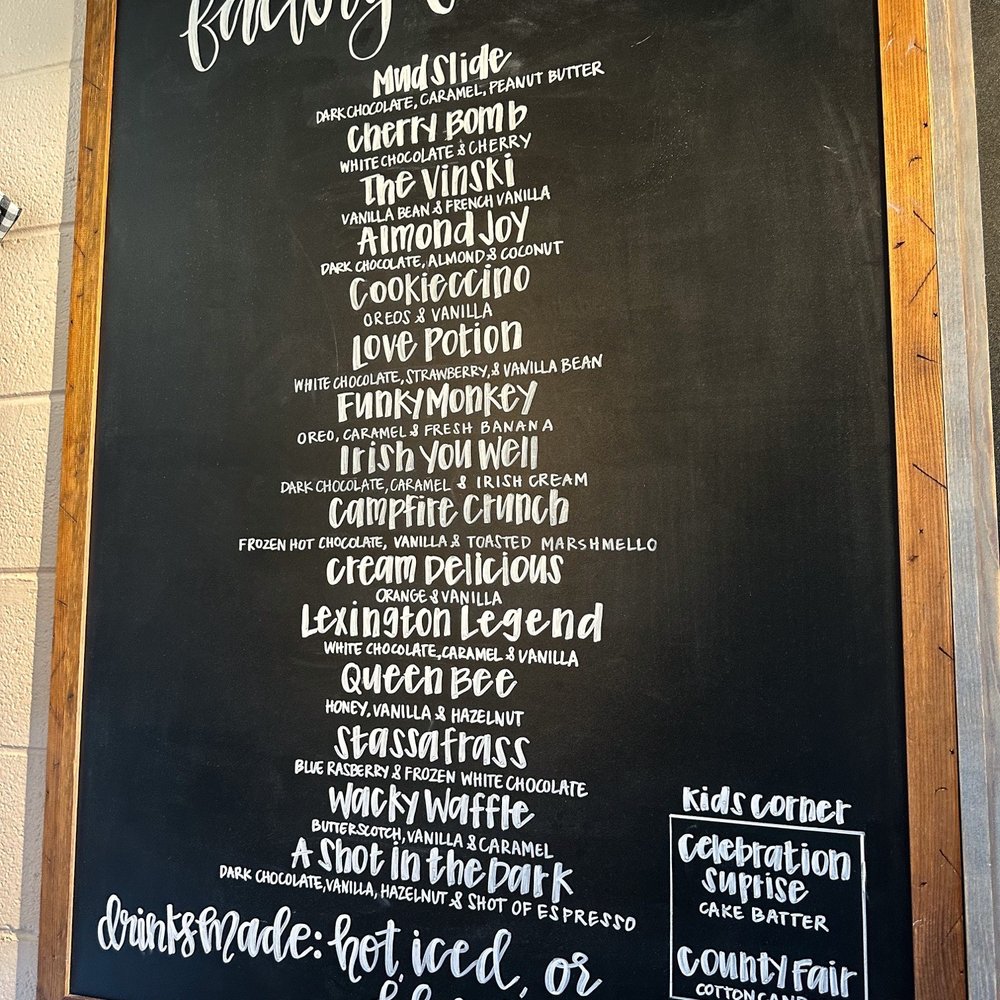 factory
Mud Slide
DARK CHOCOLATE, CARAMEL, PEANUT BUTTER
Cherry Bomb
WHITE CHOCOLATE & CHERRY
The Vinski
VANILLA BEAN & FRENCH VANILLA
Almond Joy
DARK CHOCOLATE, ALMOND & COCONUT
Cookieccino
OREOS & VANILLA
Love Potion
WHITE CHOCOLATE, STRAWBERRY, & VANILLA BEAN
Funky Monkey
OREO, CARAMEL & FRESH BANANA
Irish You Well
DARK CHOCOLATE, CARAMEL & IRISH CREAM
Campfire Crunch
FROZEN HOT CHOCOLATE, VANILLA & TOASTED MARSHMELLO
Cream Delicious
ORANGE & VANILLA
Lexington Legend
WHITE CHOCOLATE, CARAMEL & VANILLA
Queen Bee
HONEY, VANILLA & HAZELNUT
Stassafrass
BLUE RASBERRY & FROZEN WHITE CHOCOLATE
Wacky Waffle
BUTTERSCOTCH, VANILLA & CARAMEL
A Shot in the Dark
DARK CHOCOLATE, VANILLA, HAZELNUT & SHOT OF ESPRESSO
drinks made: hot, iced, or
Kids Corner
Celebration
Suprise
CAKE BATTER
County Fair